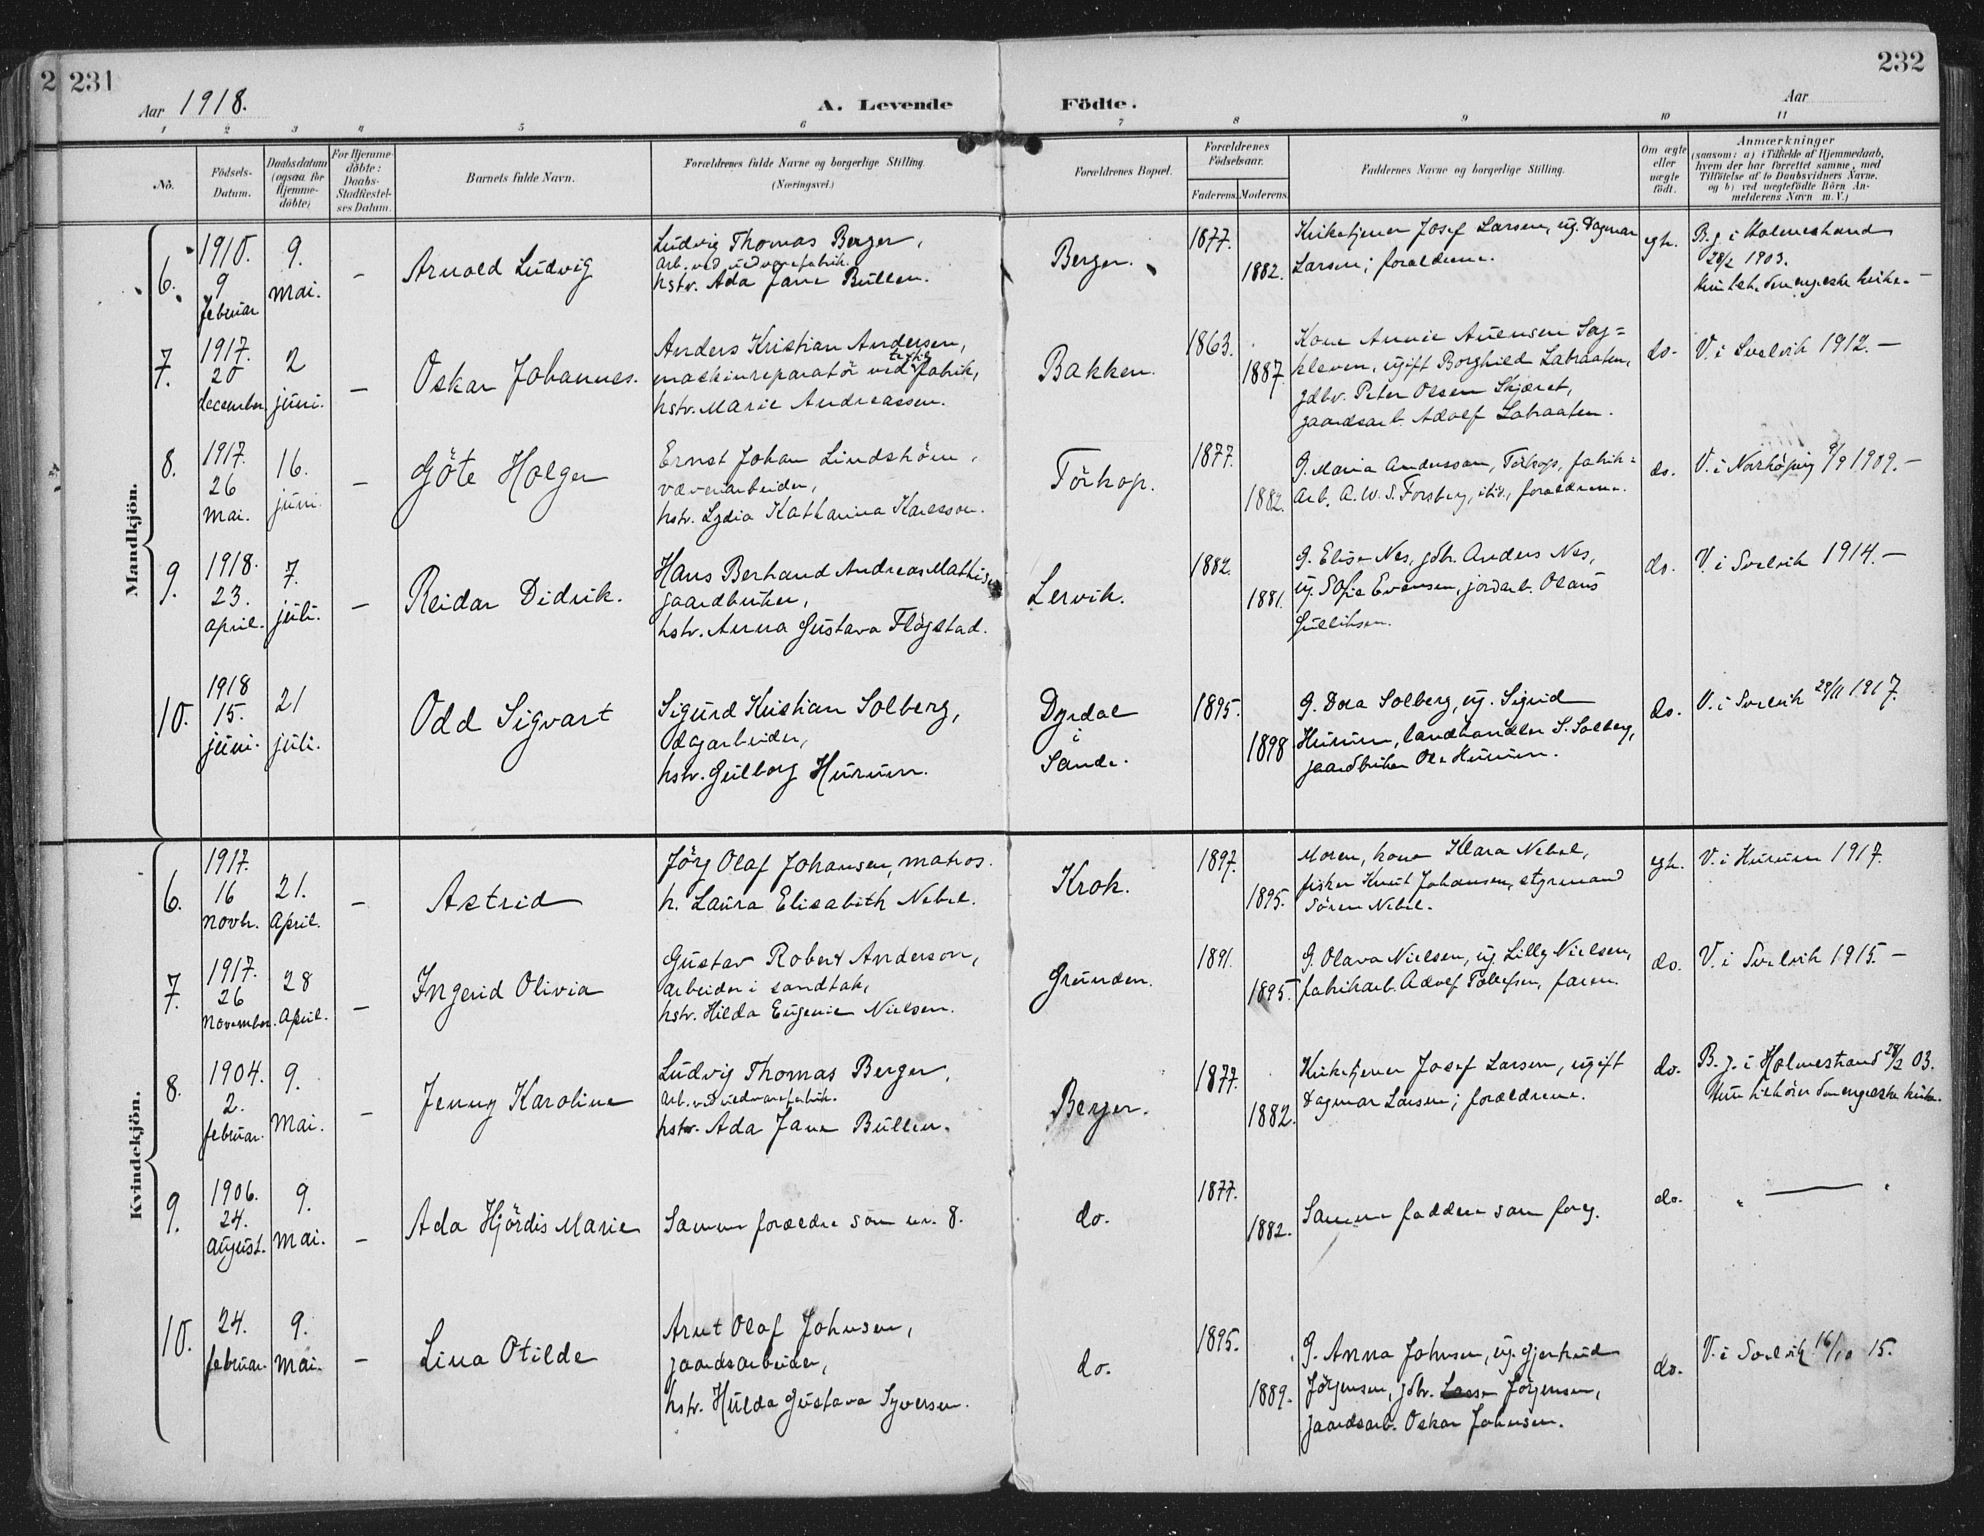 2 231
232
Aar 1918.
A. Levende
Födte.
Aar
1 2 3 4 5 6 7 8 9 10 11
No.
Födsels-
Datum.
Daabsdatum
(ogsaa for
Hjemme-
döbte)
For Hjemme-
döbte:
Daabs-
Stadfæstel-
ses Datum.
Barnets fulde Navn.
Forældrenes fulde Navne og borgerlige Stilling
(Næringsvei.)
Forældrenes Bopæl.
Forældrenes
Födselsaar.
Faderens. Moderens.
Faddernes Navne og borgerlige Stilling.
Om ægte
eller
uægte
födt.
Anmærkninger
(saasom: a) i Tilfælde af Hjemmedaab,
hvem der har forrettet samme, med
Tilföielse af to Daabsvidners Navne,
og b) ved uægtefödte Börn An-
melderens Navn m. V.)
Mandkjön.
6.
1910.
9
februar
9.
mai.
–
Arnold Ludvig
Ludvig Thomas Berger,
arb. ved uldvarefabrik.
hstr. Ada Jane Bullen.
Berger.
1877.
1882.
Kirketjener Josef Larsen, ug. Dagmar
Larsen; forældrene.
egte.
B.g. i Holmestrand
28/2 1903.
7.
1917.
20
december
2
juni.
–
Oskar Johannes.
Anders Kristian Andersen,
maskinreparatör ved textilfabrik,
hstr. Marie Andreassen.
Bakken.
1863.
1887.
Kone Annie Auensen Sag-
kleven, ugift Borghild Labraaten,
gdbr. Peter Olsen Skjæret,
gaardsarb. Adolf Labraaten.
do.
V. i Svelvik 1912. –
8.
1917.
26
mai.
16.
juni.
–
Göte Holger
Ernst Johan Lindström,
væveriarbeider,
hstr. Lydia Katharina Karlsson.
Törkop.
1877.
1882.
G. Maria Andersson, Törkop, fabrik-
arb. A. W. S. Forsberg, ibid., forældrene.
do.
V. i Norköping 9/9 1909. –
9.
1918.
23.
april.
7.
juli.
–
Reidar Didrik.
Hans Berhard Andreas Mathisen
gaardbruker,
hstr. Anna Gustava Flögstad.
Lervik.
1882.
1881.
G. Elise Nes, gdbr. Anders Nes,
ug. Sofie Evensen, jordarb. Olaus
Gulliksen.
do.
V. i Svelvik 1914. –
10.
1918
15.
juni.
21
juli.
Odd Sigvart
Sigurd Kristian Solberg,
dagarbeider,
hstr. Gulborg Hurum.
Dyrdal
i
Sande.
1895.
1898
G. Dora Solberg, ug. Sigrid
Hurum, landhandler S. Solberg,
gaardbruker Ole Hurum.
do.
V. i Svelvik 29/11 1917.
Kvindekjön.
6.
1917.
16
novbr.
21.
April.
–
Astrid
Jörg Olaf Johansen, matros.
h. Laura Elisabeth Nebel.
Krok.
1897.
1895.
Moren, kone Klara Nebel,
fisker Knut Johansen, styrmand
Sören Nebel.
egte.
V. i Hurum 1917.
7.
1917.
26
November.
28
April.
–
Ingerid Olivia
Gustav Robert Anderson,
arbeider i sandtak,
hstr. Hilda Eugenie Nielsen.
Grunden.
1891.
1895.
G. Olava Nielsen, ug. Lilly Nielsen,
fabrikarb. Adolf Tollefsen, faren.
do.
V. i Svelvik 1915. –
8.
1904.
2.
februar.
9.
Mai.
–
Jenny Karoline
Ludvig Thomas Berger,
arb. ved uldvarefabrik.
hstr. Ada Jane Bullen.
Berger.
1877.
1882.
Kirketjener Josef Larsen, ugift
Dagmar Larsen; forældrene.
do.
B.g. i Holmestrand 28/2 03.
Hun tilhörer den engelske kirke.
9.
1906.
24.
august.
9.
mai.
–
Ada Hjördis Marie
Samme forældre som nr. 8.
do.
1877.
1882.
Samme faddere som foreg.
do.
" — "
10.
24.
februar.
9.
mai.
–
Lina Otilde
Arnt Olaf Johnsen,
gaardsarbeider,
hstr. Hulda Gustava Syversen.
do.
1895.
1889.
G. Anna Johnsen, ug. Gjertrud
Jörgensen, gdbr. Jörgensen,
gaardsarb. Oskar Johnsen.
do.
V. i Svelvik 16/10 15.